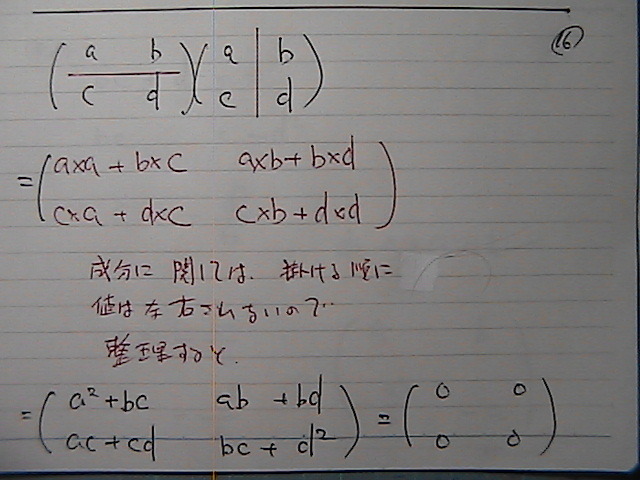 ⑯
( a b ) ( a | b )
( c d ) ( c | d )
= ( a×a + b×c a×b + b×d )
( c×a + d×c c×b + d×d )
成分に関しては、掛ける順に
値は左右されないので…
整理すると、
= ( a² + bc ab + bd ) = ( 0 0 )
( ac + cd bc + d² ) ( 0 0 )